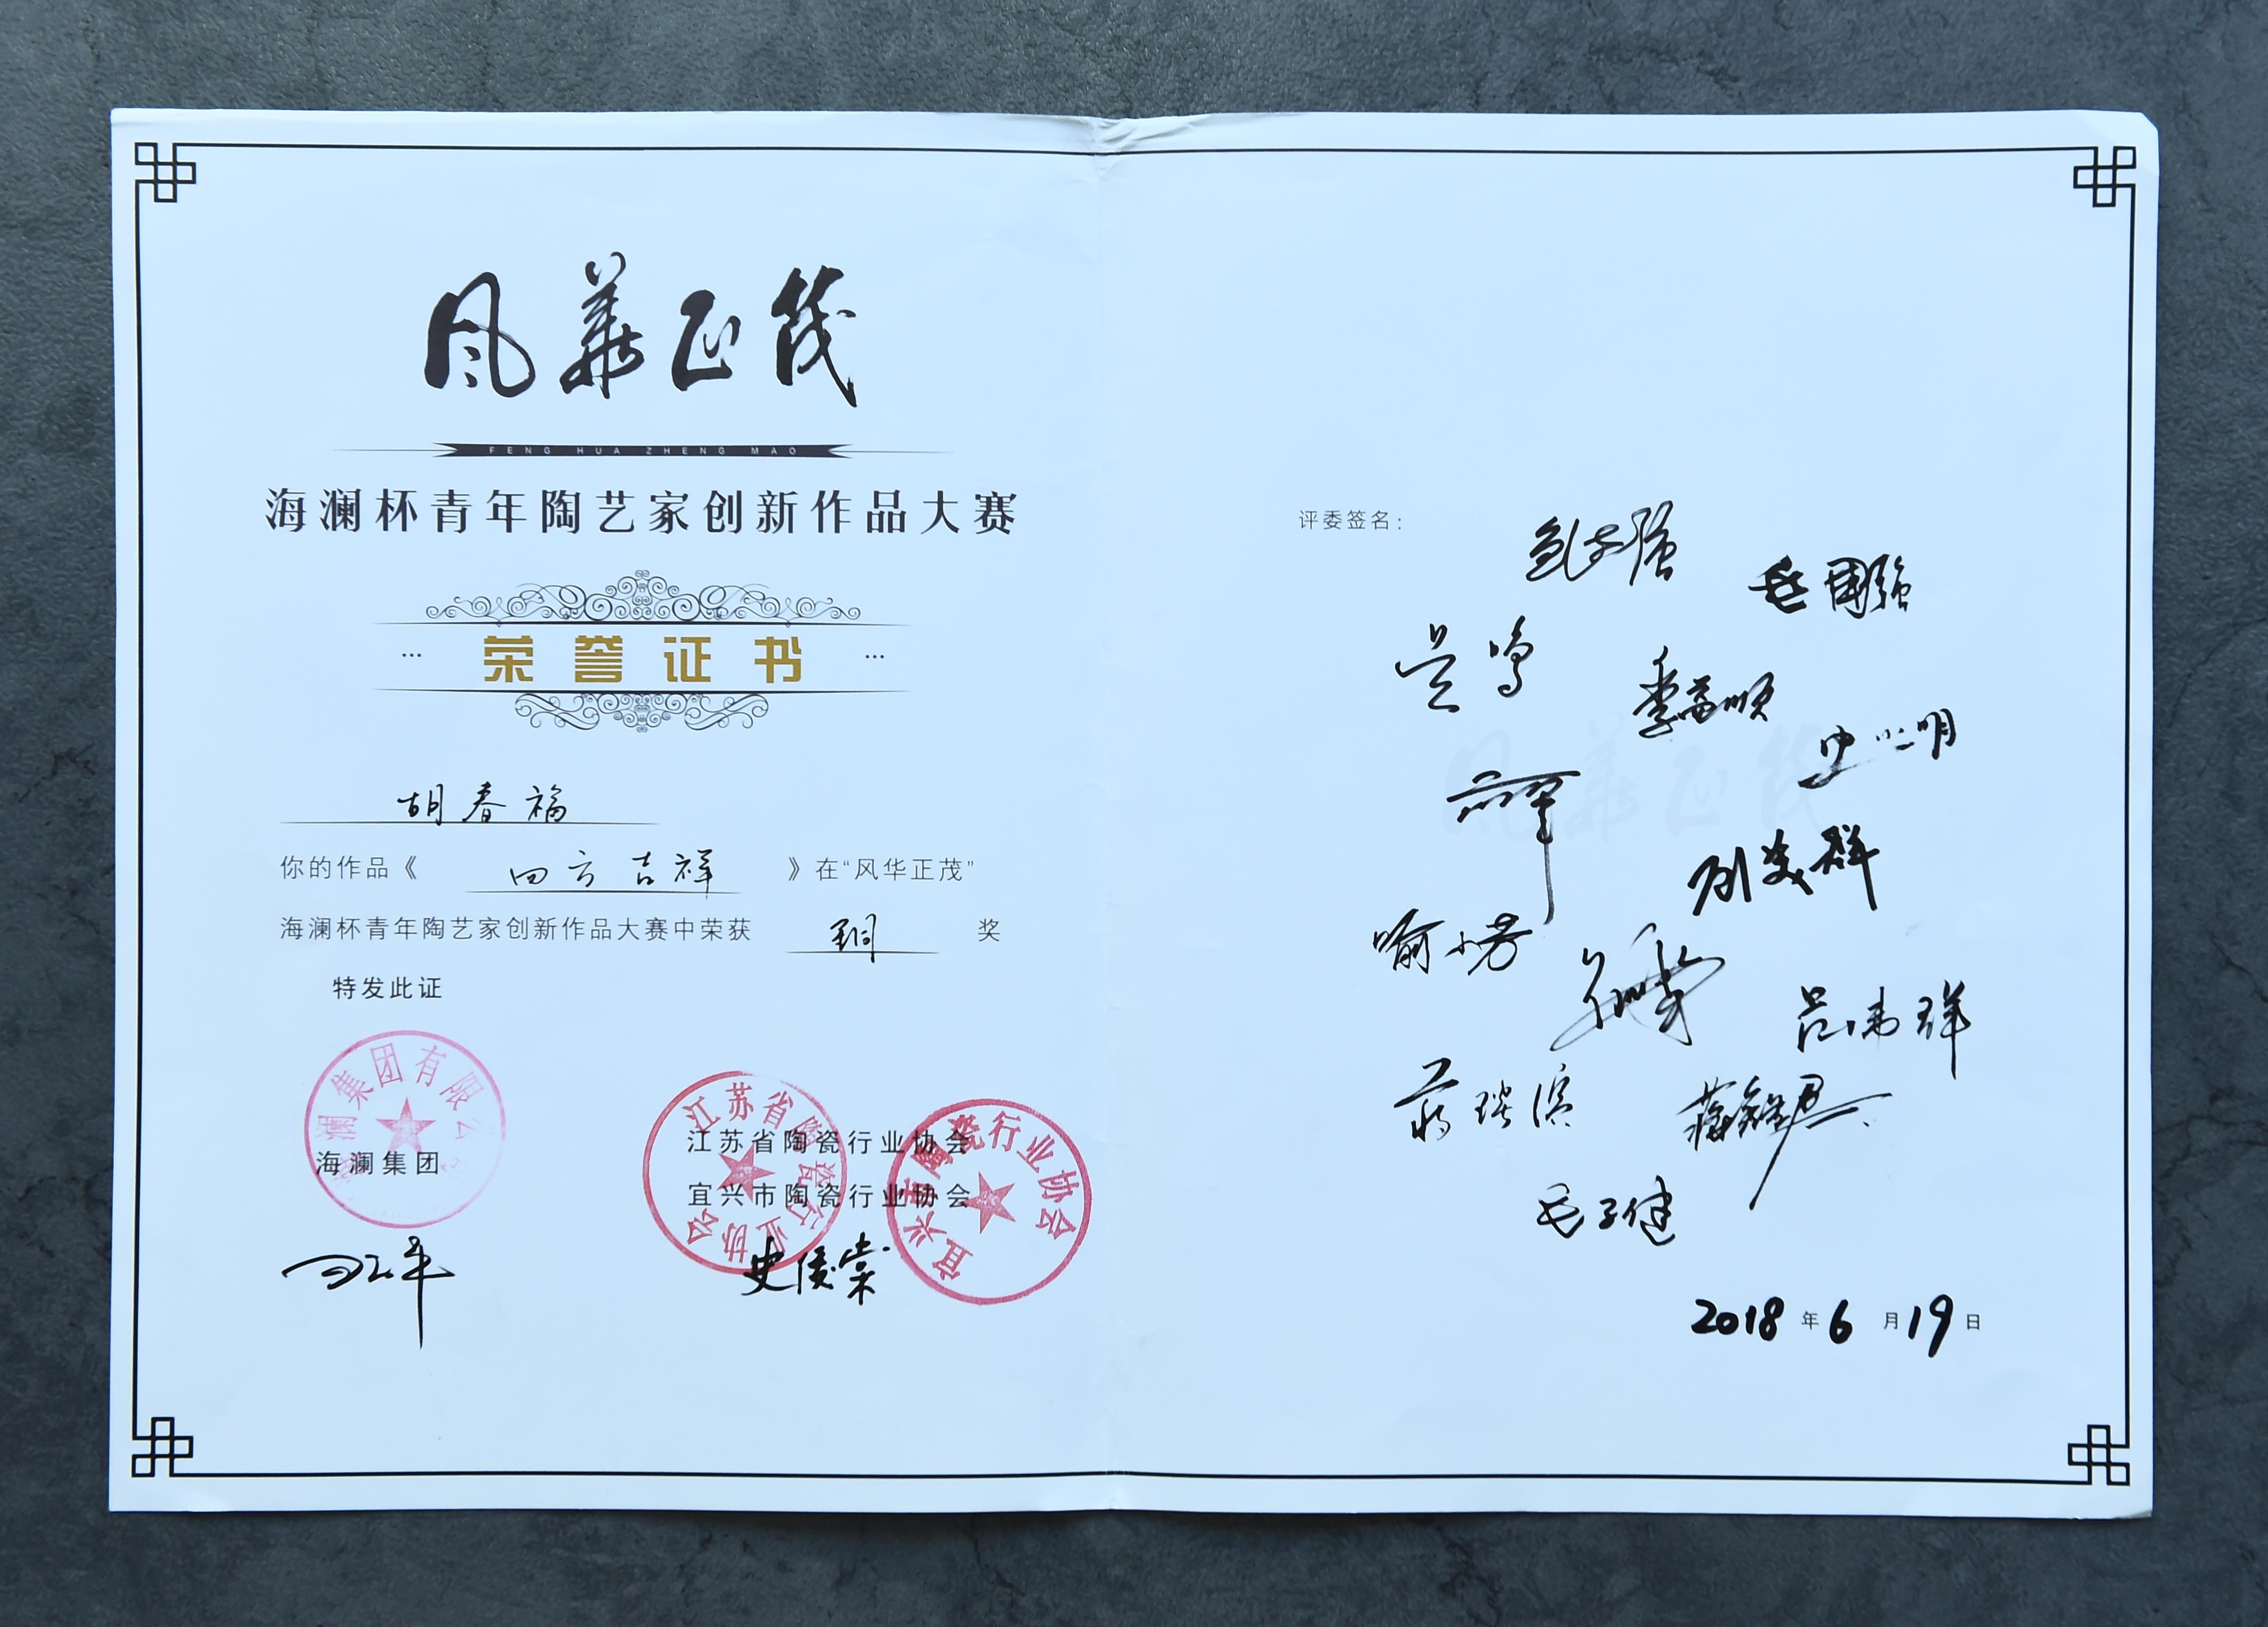 风华正茂
FENG HUA ZHENG MAO
海澜杯青年陶艺家创新作品大赛
荣誉证书
胡春福
你的作品《 四方吉祥 》在“风华正茂”
海澜杯青年陶艺家创新作品大赛中荣获 铜 奖
特发此证
澜集团有限公
海澜集团
江苏省陶瓷行业协会
宜兴市陶瓷行业协会
江苏省陶瓷行业协会
宜兴市陶瓷行业协会
史俊棠
评委签名：
吴鸣
季益顺
喻小芳
吕俊祥
毛子健
风华正茂
2018年6月19日